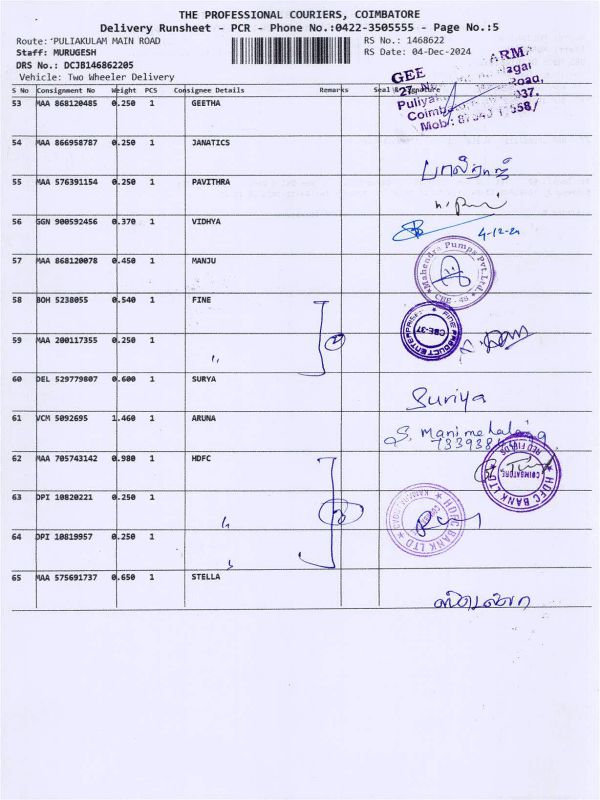 THE PROFESSIONAL COURIERS, COIMBATORE
Delivery Runsheet - PCR - Phone No.:0422-3505555 - Page No.:5
Route: PULIAKULAM MAIN ROAD RS No.: 1468622
Staff: MURUGESH RS Date: 04-Dec-2024
DRS No.: DCJB146862205
Vehicle: Two Wheeler Delivery
S No Consignment No Weight PCS Consignee Details Remarks Seal & Signature
53 MAA 868120485 0.250 1 GEETHA
GEE ARMA
27, Nagar
Puliya Road,
Coimb 037.
Mob:
54 MAA 866958787 0.250 1 JANATICS
பால்ராஜ்
55 MAA 576391154 0.250 1 PAVITHRA
56 GGN 900592456 0.370 1 VIDHYA
4-12-24
57 MAA 868120078 0.450 1 MANJU
Mahendra Pumps Pvt. Ltd.
CBE - 45
58 BOH 5238055 0.540 1 FINE
FINE PRODUCT ENTERPRISES
CBE-37
59 MAA 200117355 0.250 1 "
2
60 DEL 529779807 0.600 1 SURYA
Suriya
61 VCM 5092695 1.460 1 ARUNA
S. Manimehalai
62 MAA 705743142 0.980 1 HDFC
HDFC BANK LTD
RED FIELDS
COIMBATORE
63 DPI 10820221 0.250 1 "
3
HDFC BANK LTD
64 DPI 10819957 0.250 1 "
65 MAA 575691737 0.650 1 STELLA
ஸ்டெல்லா